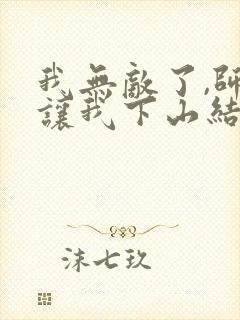 我無敵了,師
讓我下山結
沫七玖